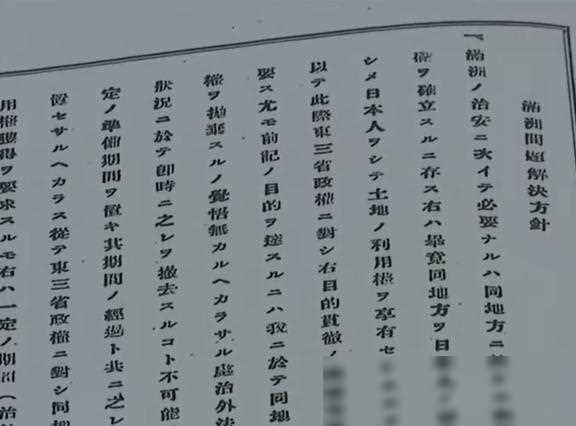 滿洲問題解決方針
一、滿洲ノ治安ニ次イテ必要ナルハ同地方ニ
權ヲ確立スルニ存ス右ハ畢竟同地方ヲ日
シメ日本人ヲシテ土地ノ利用權ヲ享有セ
以テ此際東三省政權ニ對シ右目的貫徹ノ
要ス尤モ前記ノ目的ヲ達スルニハ我ニ於テ同地
權ヲ拋棄スルノ覺悟無カルヘカラサル處治外法
狀況ニ於テ卽時ニ之レヲ撤去スルコト不可能
定ノ準備期間ヲ置キ其期間ノ經過ト共ニ之レ
セサルヘカラス從テ東三省政權ニ對シ同地
用權獲得ヲ要求スルモ右ハ一定ノ期間(治